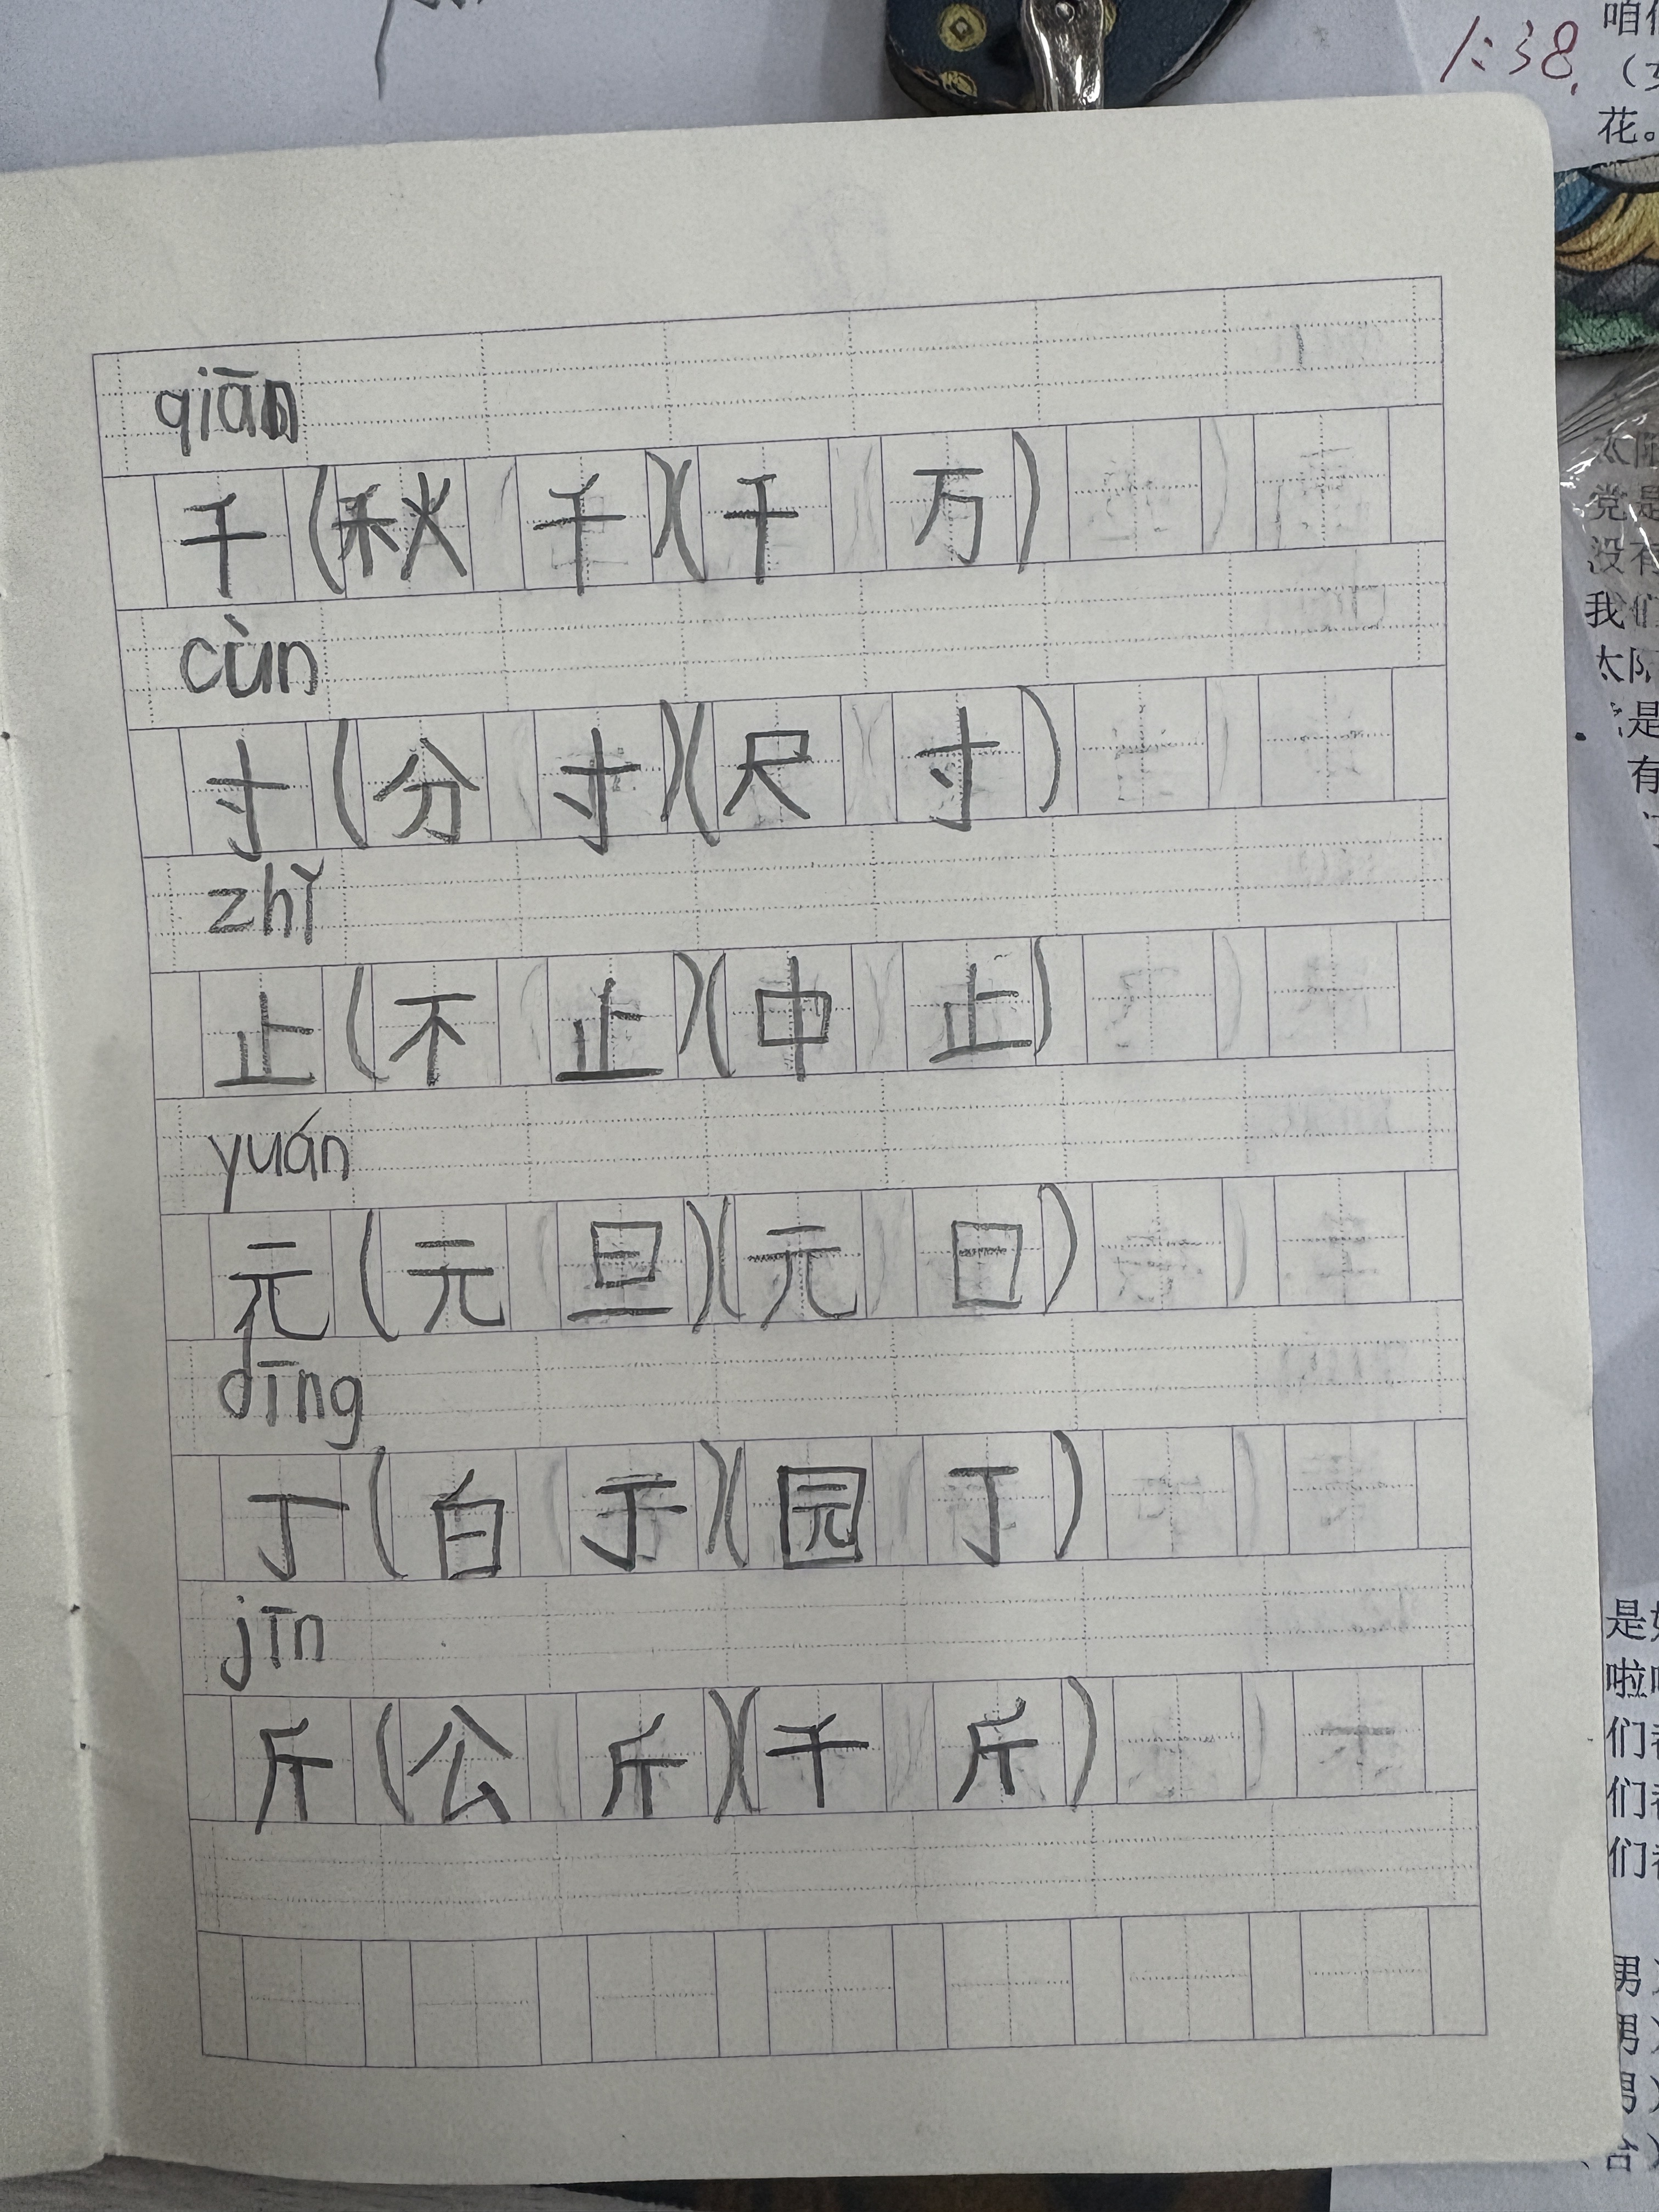 1:38.
花。
qiān
千(秋千)(千万)
cùn
寸(分寸)(尺寸)
zhǐ
止(不止)(中止)
yuán
元(元旦)(元日)
dīng
丁(白于)(园丁)
jīn
斤(公斤)(千斤)
党是
没有
我们
太阳
是
有
是
啦
们
们
们
男
男
男